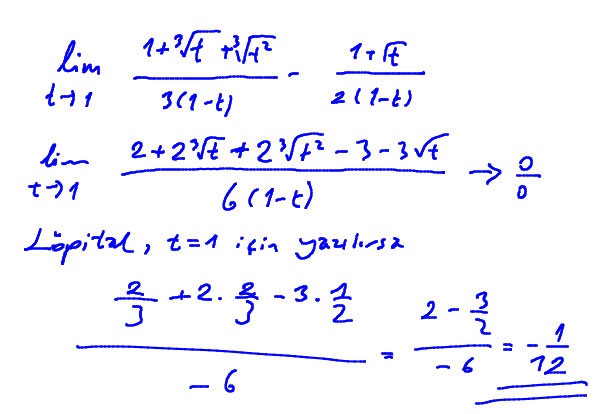 lim t→1 (1+∛t+∛t²)/(3(1-t)) - (1+√t)/(2(1-t))
lim t→1 (2+2∛t+2∛t²-3-3√t)/(6(1-t)) → 0/0
Lôpital, t=1 için yazılırsa
(2/3+2·2/3-3·1/2)/(-6) = (2-3/2)/(-6) = -1/12